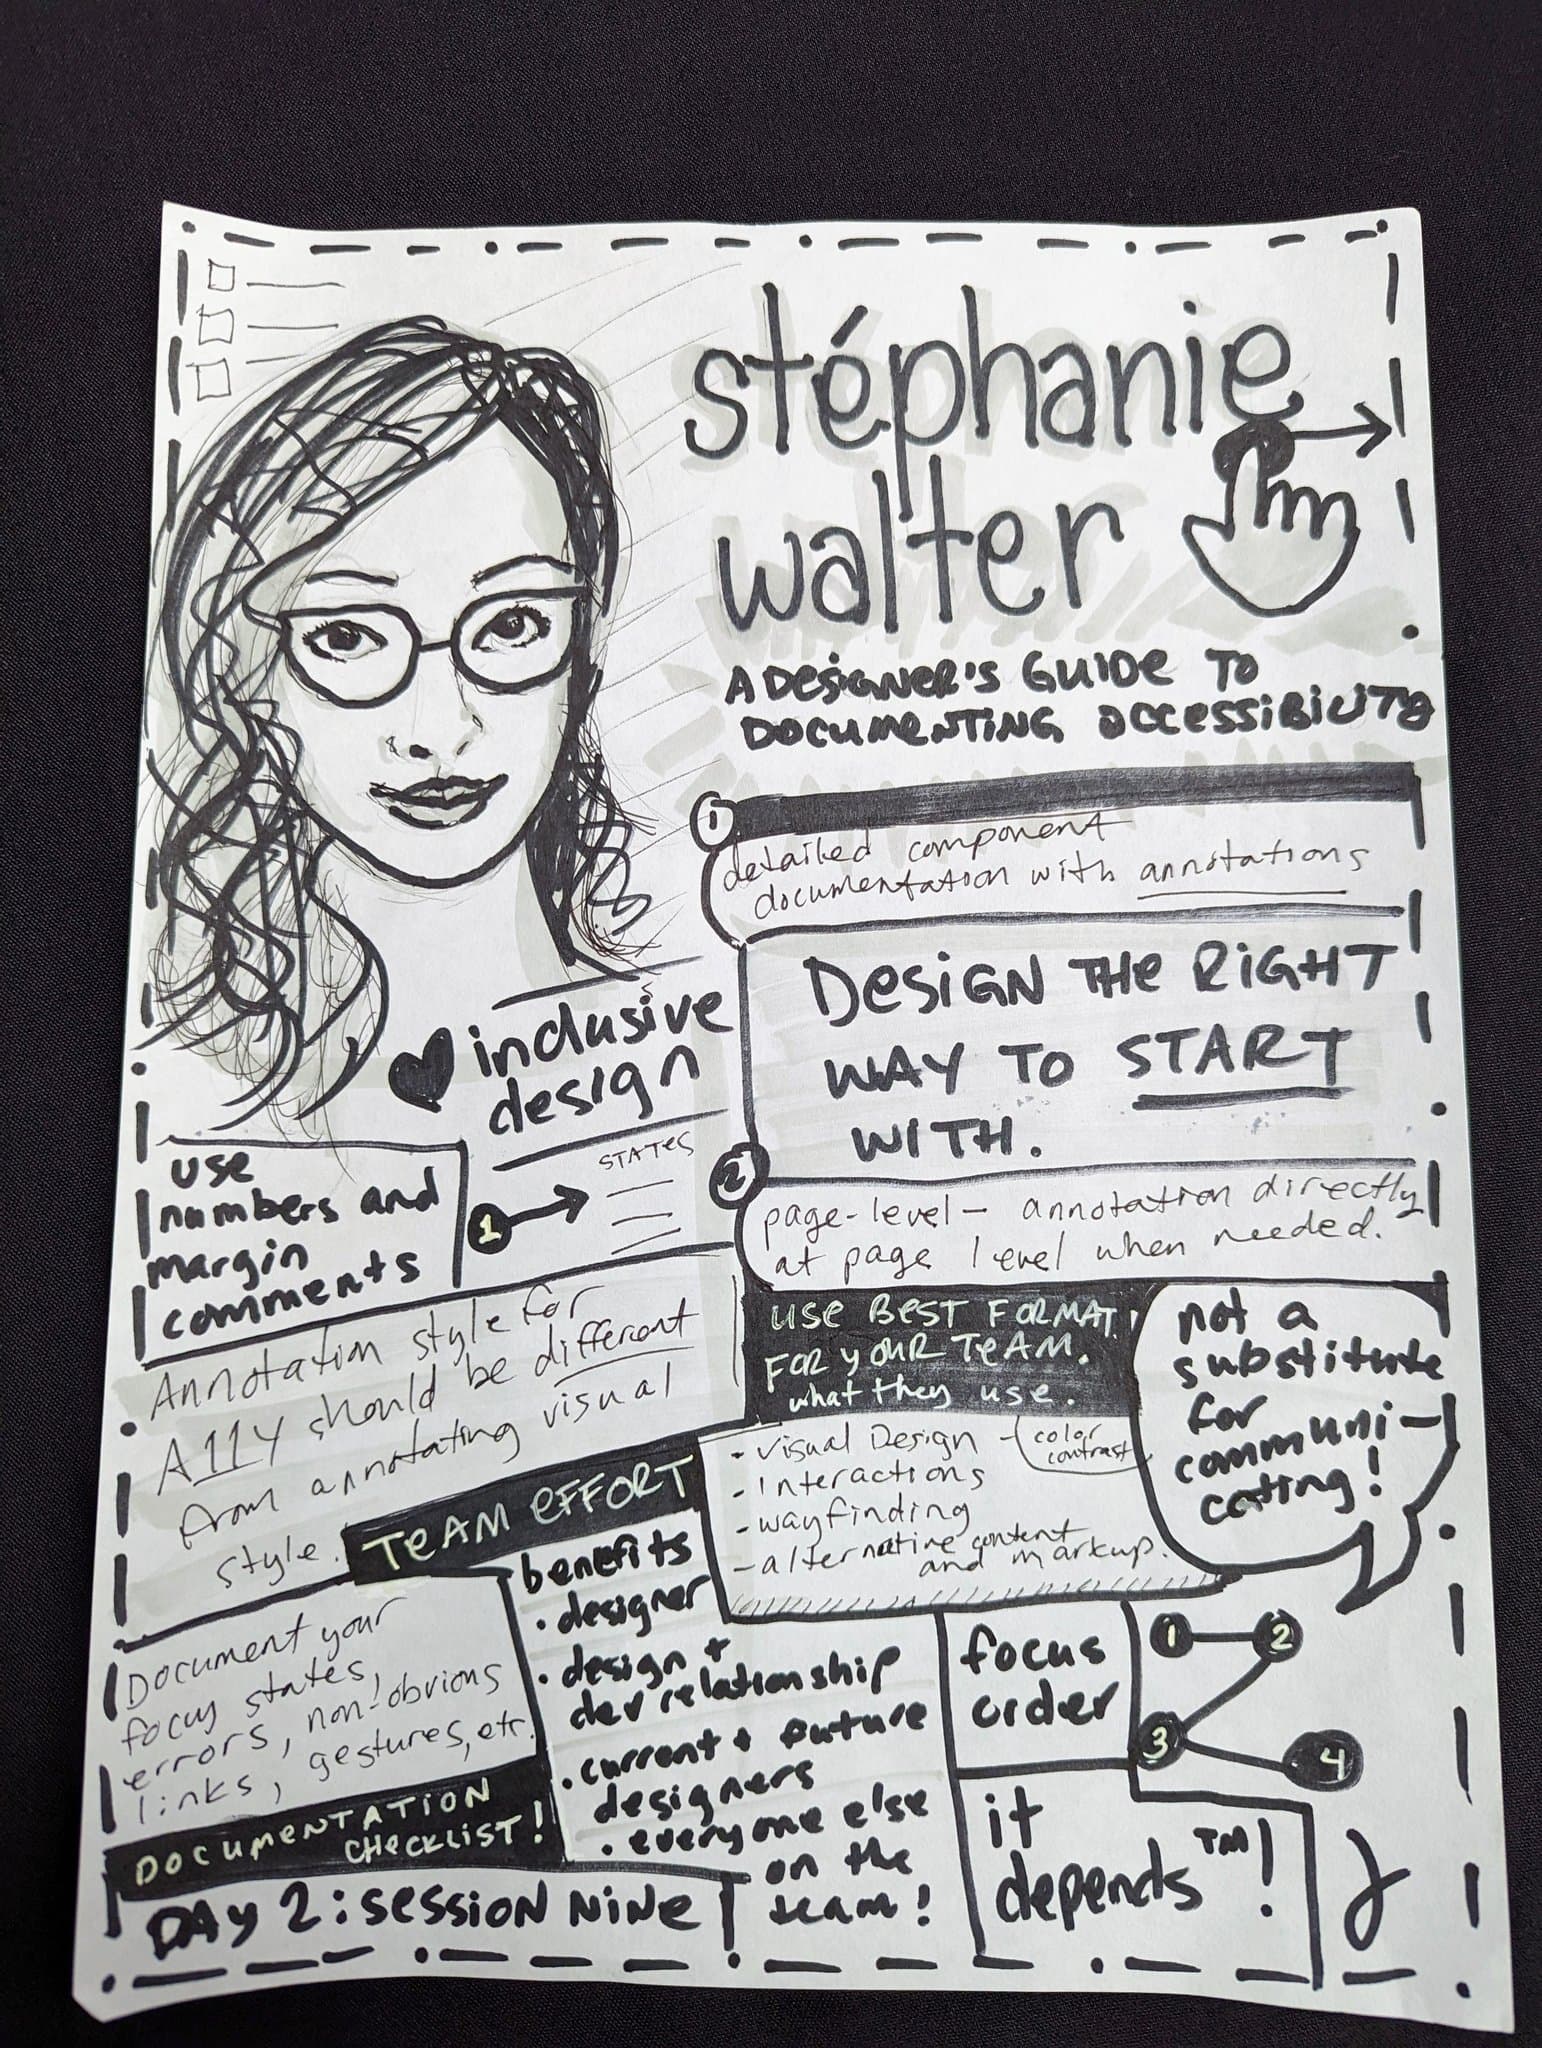 stéphanie
walter
A DESIGNER'S GUIDE TO
DOCUMENTING ACCESSIBILITY
1
detailed component
documentation with annotations
DESIGN THE RIGHT
WAY TO START
WITH.
2
page-level - annotation directly
at page level when needed.
USE BEST FORMAT
FOR YOUR TEAM.
what they use.
- visual Design - color
contrast
- interactions
- wayfinding
- alternative content
and markup.
not a
substitute
for
communi-
cating!
inclusive
design
use
numbers and
margin
comments
1
STATES
Annotation style for
A11Y should be different
from annotating visual
style.
TEAM EFFORT
benefits
• designer
• design +
dev relationship
• current + future
designers
• everyone else
on the
team!
Document your
focus states,
errors, non-obvious
links, gestures, etc.
DOCUMENTATION
CHECKLIST!
DAY 2: SESSION NINE
focus
order
1
2
3
4
it
depends™!